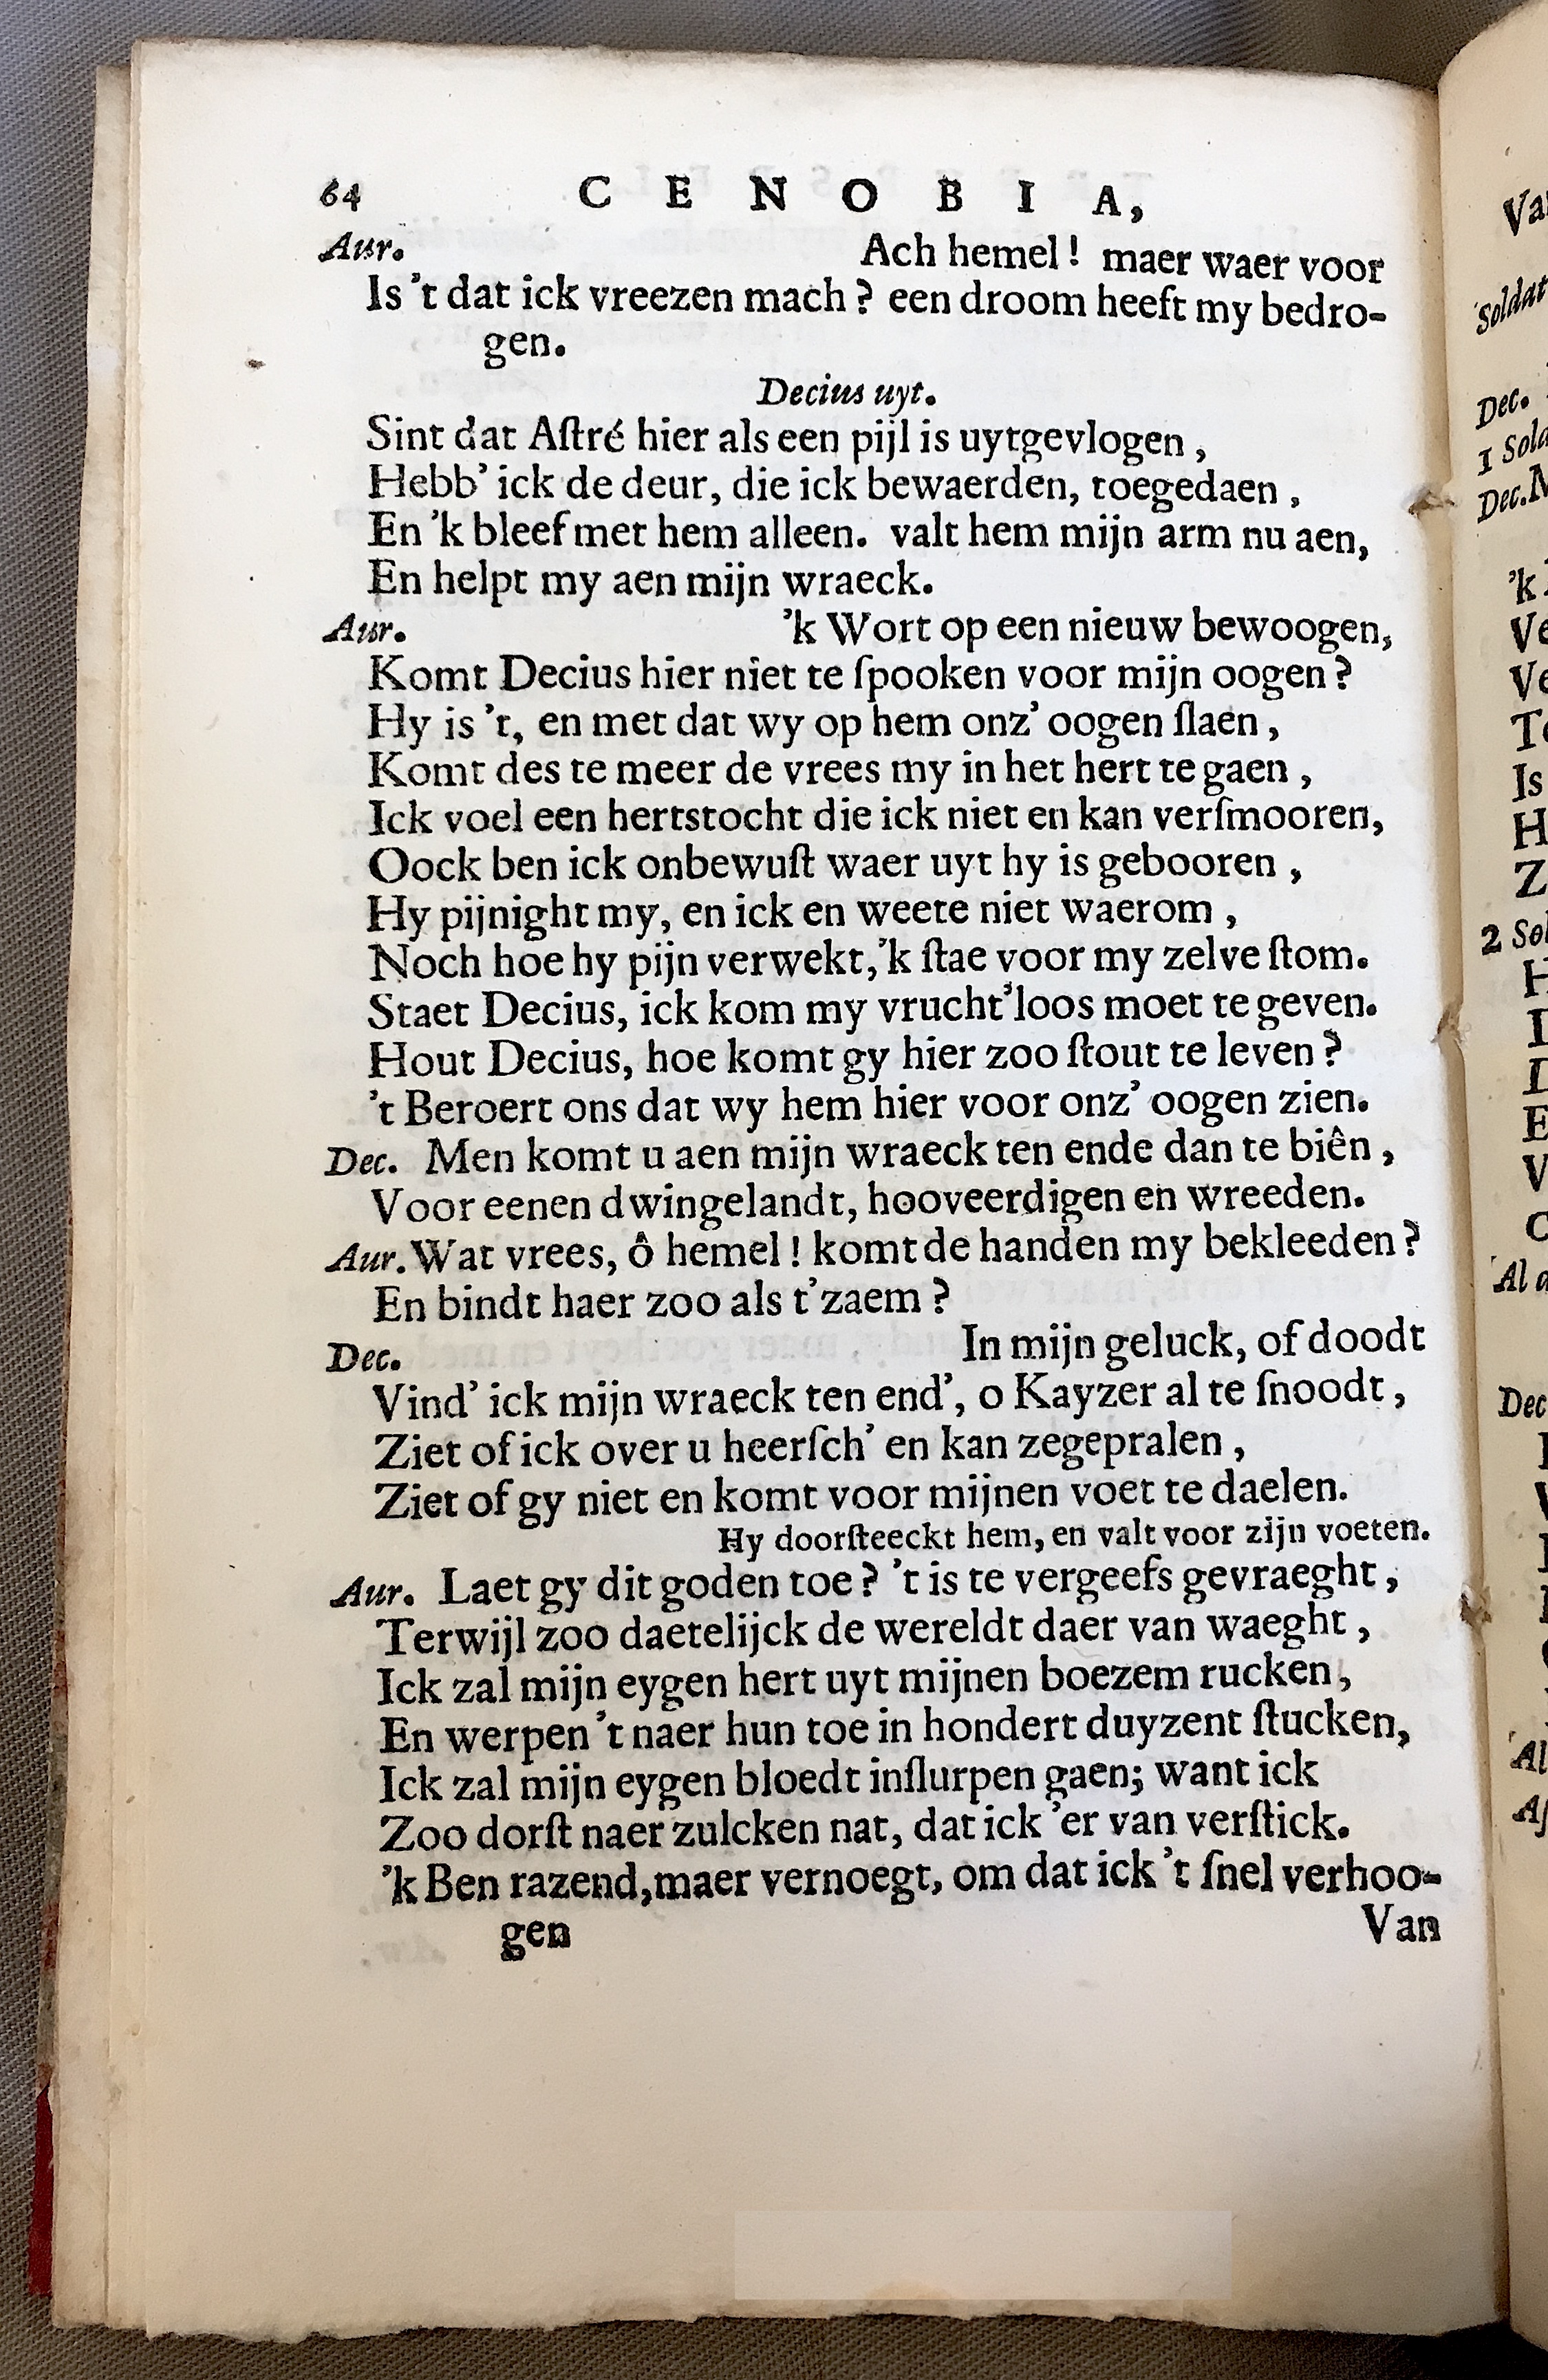 64 CENOBIA,
Aur. Ach hemel! maer waer voor
Is 't dat ick vreezen mach? een droom heeft my bedro-
gen.
Decius uyt.
Sint dat Aſtré hier als een pijl is uytgevlogen,
Hebb' ick de deur, die ick bewaerden, toegedaen,
En 'k bleef met hem alleen. valt hem mijn arm nu aen,
En helpt my aen mijn wraeck.
Aur. 'k Wort op een nieuw bewoogen,
Komt Decius hier niet te ſpooken voor mijn oogen?
Hy is 't, en met dat wy op hem onz' oogen ſlaen,
Komt des te meer de vrees my in het hert te gaen,
Ick voel een hertstocht die ick niet en kan verſmooren,
Oock ben ick onbewuſt waer uyt hy is gebooren,
Hy pijnight my, en ick en weete niet waerom,
Noch hoe hy pijn verwekt, 'k ſtae voor my zelve ſtom.
Staet Decius, ick kom my vrucht'loos moet te geven.
Hout Decius, hoe komt gy hier zoo ſtout te leven?
't Beroert ons dat wy hem hier voor onz' oogen zien.
Dec. Men komt u aen mijn wraeck ten ende dan te biên,
Voor eenen dwingelandt, hooveerdigen en wreeden.
Aur. Wat vrees, ô hemel! komt de handen my bekleeden?
En bindt haer zoo als t'zaem?
Dec. In mijn geluck, of doodt
Vind' ick mijn wraeck ten end', o Kayzer al te ſnoodt,
Ziet of ick over u heerſch' en kan zegepralen,
Ziet of gy niet en komt voor mijnen voet te daelen.
Hy doorſteeckt hem, en valt voor zijn voeten.
Aur. Laet gy dit goden toe? 't is te vergeefs gevraeght,
Terwijl zoo daetelijck de wereldt daer van waeght,
Ick zal mijn eygen hert uyt mijnen boezem rucken,
En werpen 't naer hun toe in hondert duyzent ſtucken,
Ick zal mijn eygen bloedt inſlurpen gaen; want ick
Zoo dorſt naer zulcken nat, dat ick 'er van verſtick.
'k Ben razend, maer vernoegt, om dat ick 't ſnel verhoo-
gen Van
Soldat
Dec.
1 Sol
Dec. M
'k
Ve
Ve
Is
H
Z
2 Sol
H
E
V
Al
Dec
Al